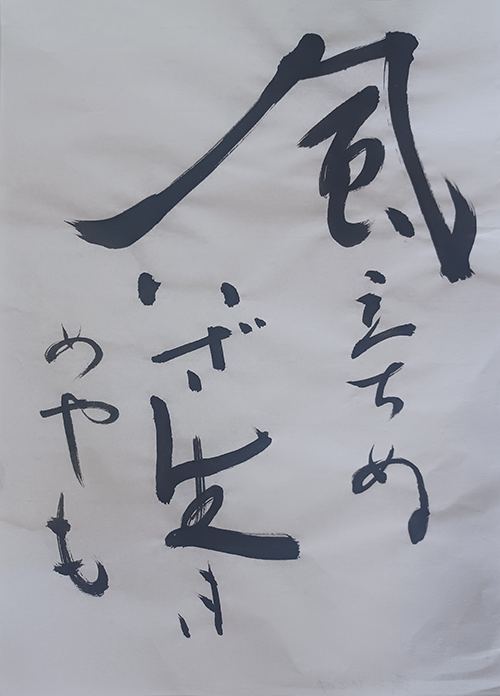 風立ちぬ
いざ生き
めやも